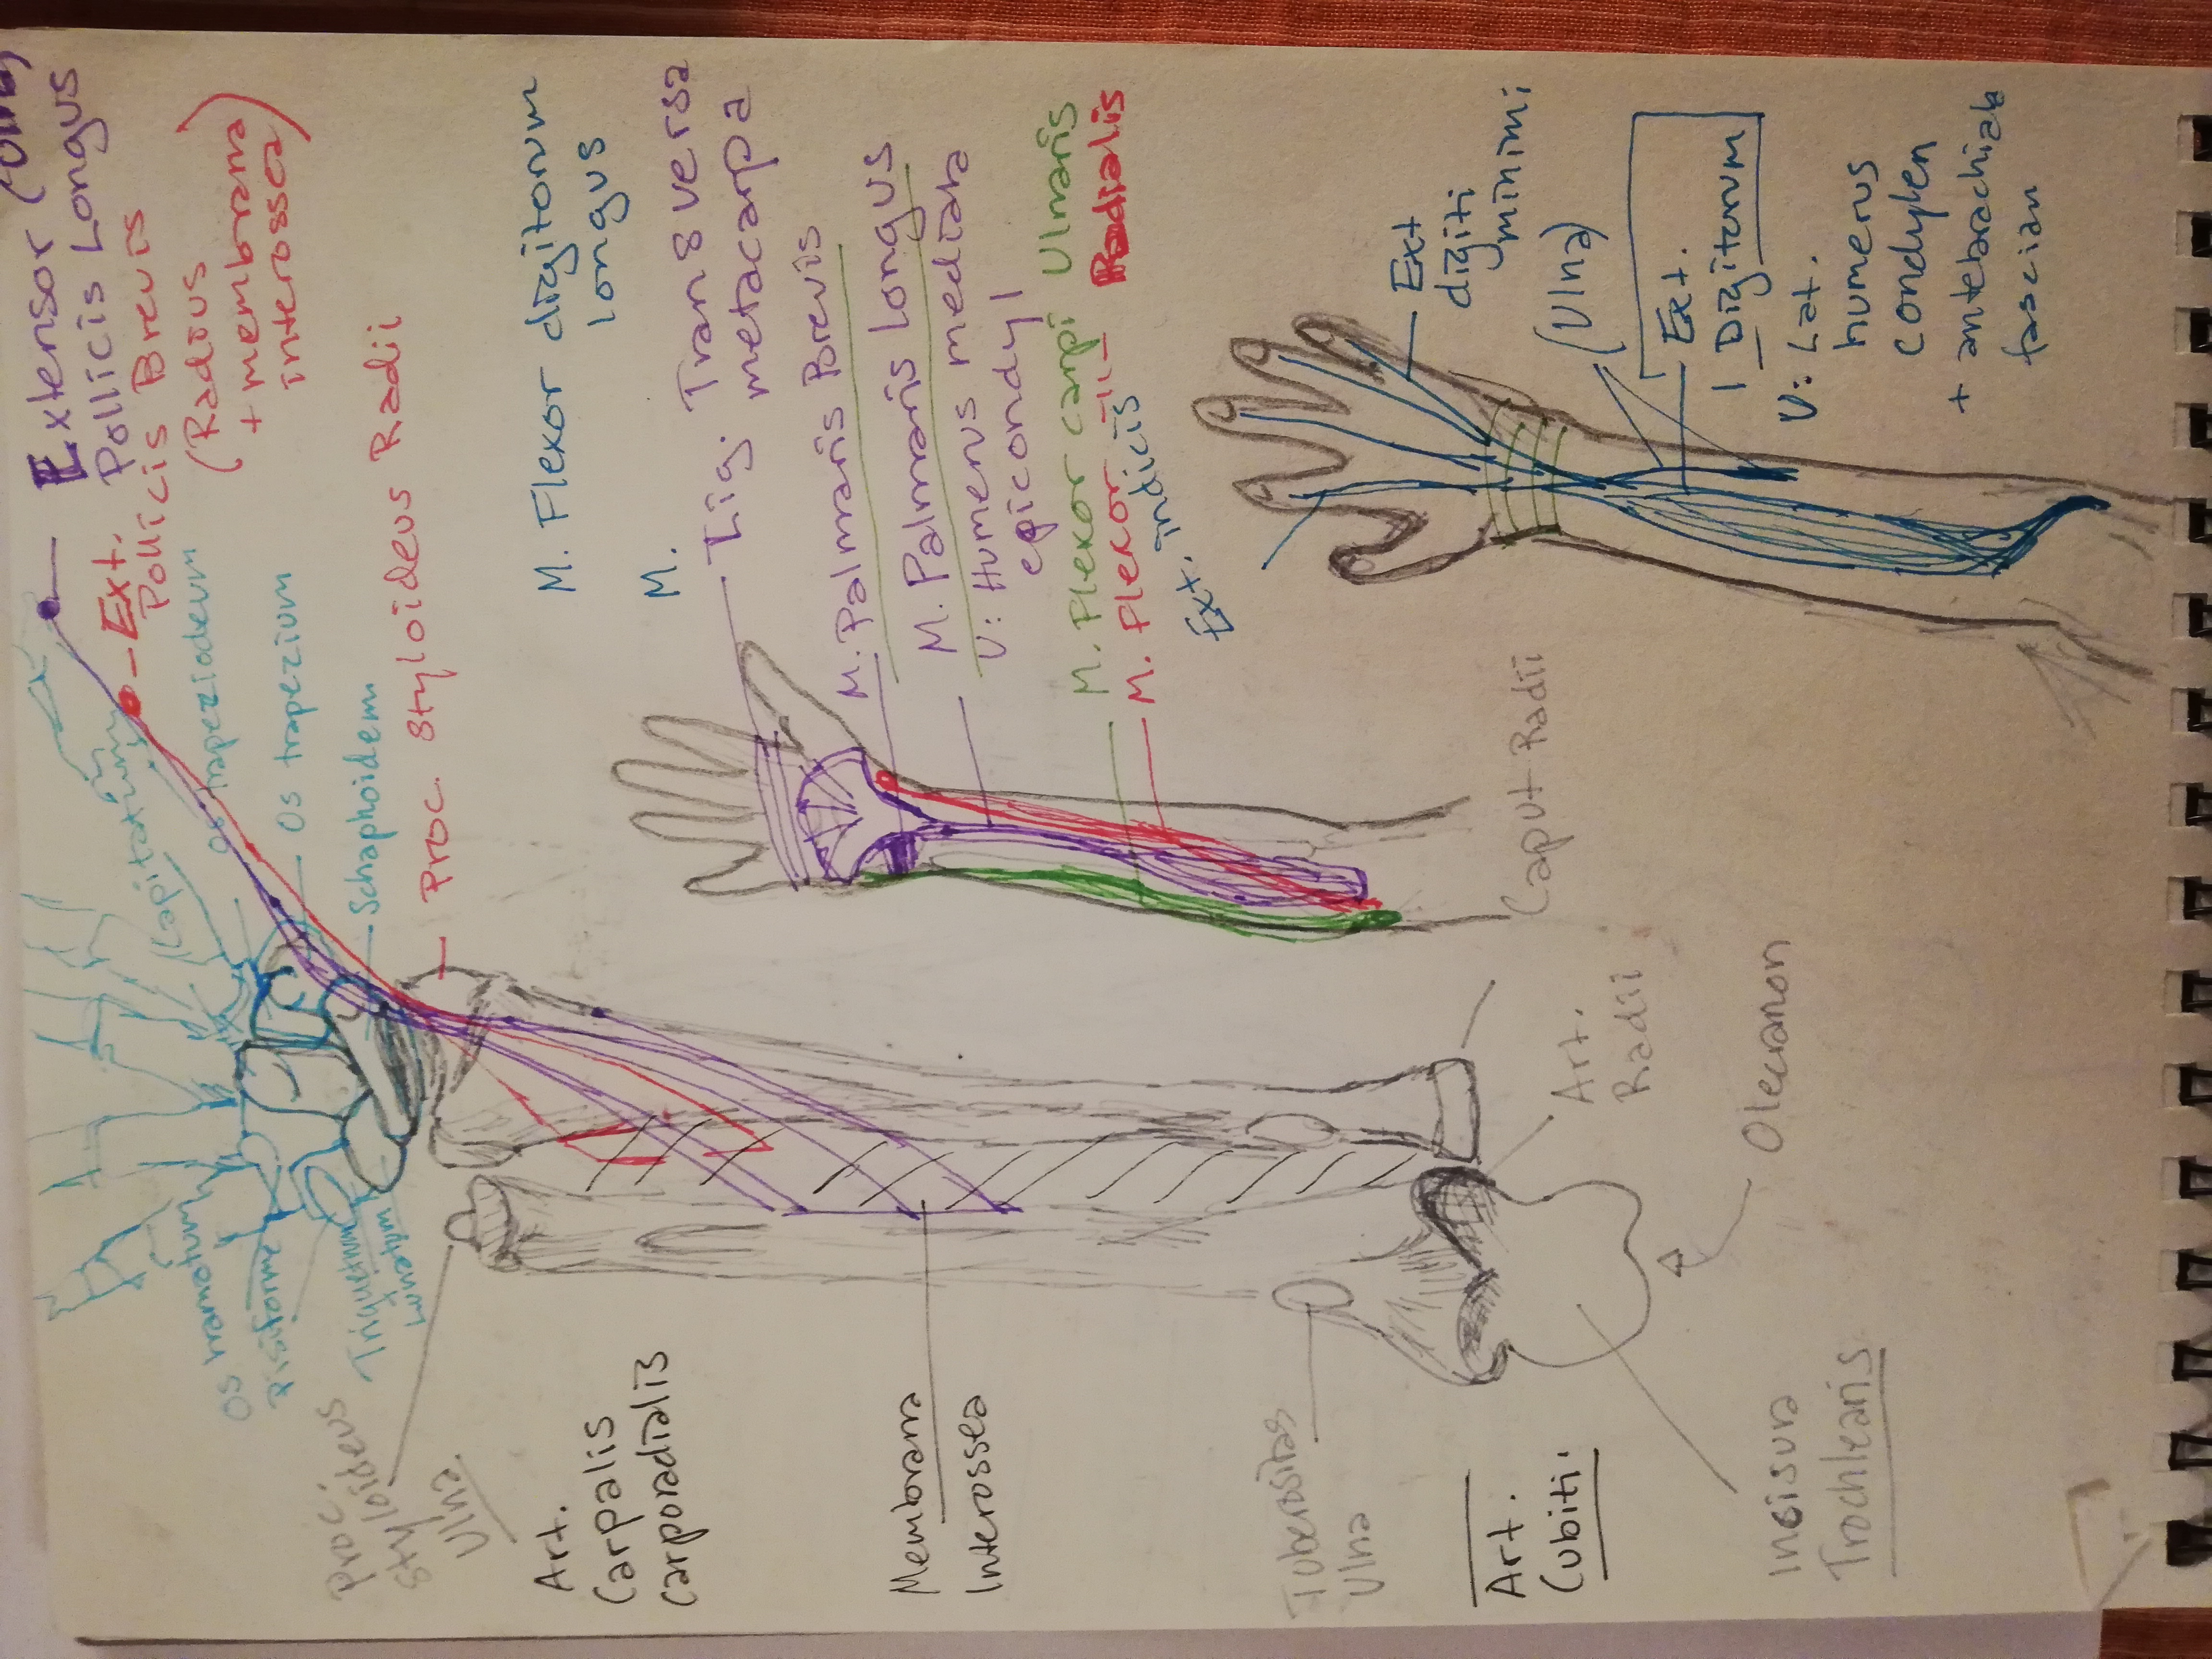 Extensor (Ulna)
Pollicis Longus
Ext.
Pollicis Brevis
(Radius
+ membrana
interossea)
Os trapeziodeum
(Kapitatum)
Os trapezium
Schaphoidem
Proc. Styloideus Radii
Os hamatum
Pisiforme
Triquetrum
Lunatum
Proc.
Styloideus
Ulna
Art.
Carpalis
carporadialis
Membrana
Interossea
Tuberositas
Ulna
Art.
Cubiti
Incisura
Trochlearis
Olecranon
Art.
Radii
Caput Radii
M. Flexor digitorum
longus
M.
Lig. Transversa
metacarpa
M. Palmaris Brevis
M. Palmaris Longus
U: Humerus mediala
epicondyl
M. Flexor carpi Ulnaris
M. Flexor -11- Radialis
Ext. indicis
Ext
digiti
minimi
(Ulna)
Ext.
Digitorum
U: Lat.
humerus
condylen
+ antebrachiala
fascian